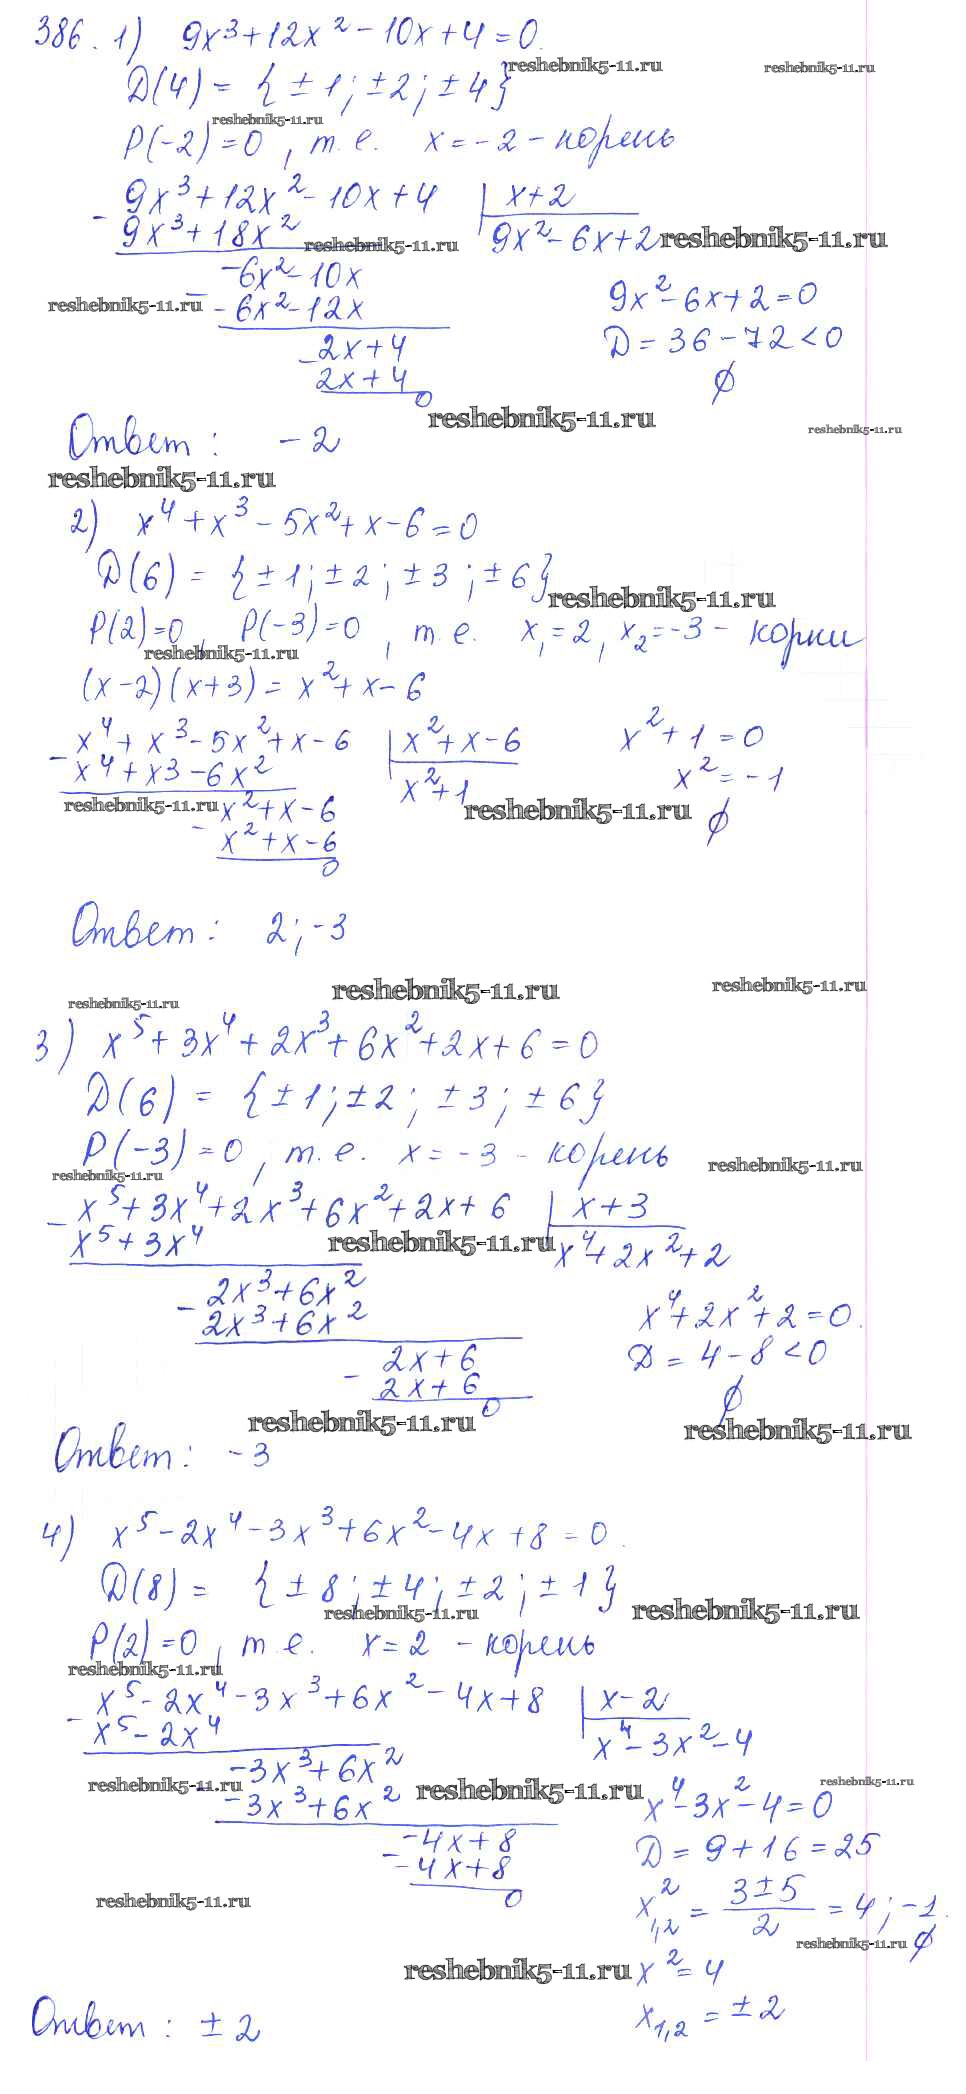 386. 1) 9x³+12x²-10x+4=0.
reshebnik5-11.ru
reshebnik5-11.ru
D(4) = {±1; ±2; ±4}
reshebnik5-11.ru
P(-2)=0, т.е. x=-2 - корень
- 9x³+12x²-10x+4 | x+2
9x³+18x² 9x²-6x+2
reshebnik5-11.ru
reshebnik5-11.ru
- -6x²-10x
reshebnik5-11.ru
-6x²-12x
9x²-6x+2=0
- 2x+4
D=36-72<0
2x+4
∅
0
reshebnik5-11.ru
reshebnik5-11.ru
Ответ: -2
reshebnik5-11.ru
2) x⁴+x³-5x²+x-6=0
D(6) = {±1; ±2; ±3; ±6}
reshebnik5-11.ru
P(2)=0, P(-3)=0, т.е. x₁=2, x₂=-3 - корни
reshebnik5-11.ru
(x-2)(x+3)=x²+x-6
- x⁴+x³-5x²+x-6 | x²+x-6
x⁴+x3-6x² x²+1
x²+1=0
x²=-1
∅
reshebnik5-11.ru
reshebnik5-11.ru
- x²+x-6
x²+x-6
0
Ответ: 2; -3
reshebnik5-11.ru
reshebnik5-11.ru
reshebnik5-11.ru
3) x⁵+3x⁴+2x³+6x²+2x+6=0
D(6) = {±1; ±2; ±3; ±6}
P(-3)=0, т.е. x=-3 - корень
reshebnik5-11.ru
reshebnik5-11.ru
- x⁵+3x⁴+2x³+6x²+2x+6 | x+3
x⁵+3x⁴ x⁴+2x²+2
reshebnik5-11.ru
- 2x³+6x²
2x³+6x²
x⁴+2x²+2=0.
- 2x+6
D=4-8<0
2x+6
∅
0
reshebnik5-11.ru
reshebnik5-11.ru
Ответ: -3
4) x⁵-2x⁴-3x³+6x²-4x+8=0.
D(8) = {±8; ±4; ±2; ±1}
reshebnik5-11.ru
reshebnik5-11.ru
P(2)=0, т.е. x=2 - корень
reshebnik5-11.ru
- x⁵-2x⁴-3x³+6x²-4x+8 | x-2
x⁵-2x⁴ x⁴-3x²-4
-3x³+6x²
reshebnik5-11.ru
reshebnik5-11.ru
reshebnik5-11.ru
-3x³+6x²
x⁴-3x²-4=0
- -4x+8
D=9+16=25
-4x+8
0
x²₁,₂ = (3±5)/2 = 4; -1.
∅
reshebnik5-11.ru
reshebnik5-11.ru
reshebnik5-11.ru
x²=4
x₁,₂=±2
Ответ: ±2